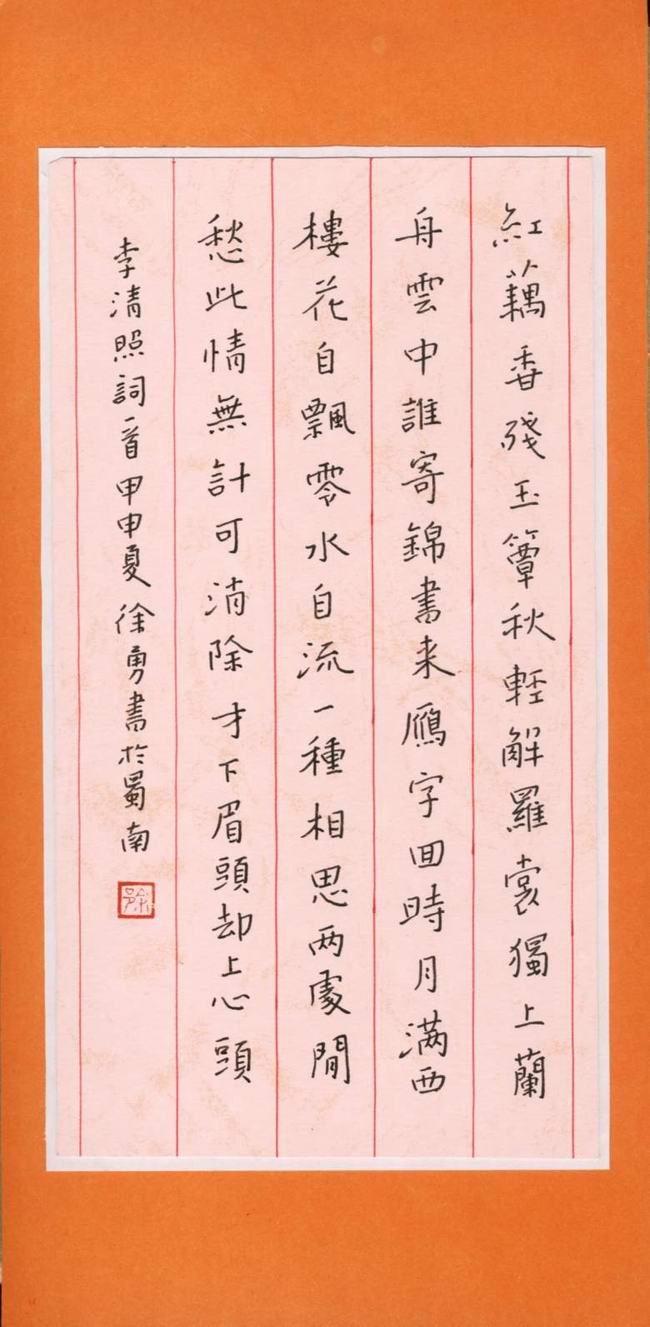 紅藕香殘玉簟秋輕解羅裳獨上蘭
舟雲中誰寄錦書来鴈字回時月满西
樓花自飄零水自流一種相思两處閒
愁此情無計可消除才下眉頭却上心頭
李清照詞一首甲申夏徐勇書於蜀南
徐